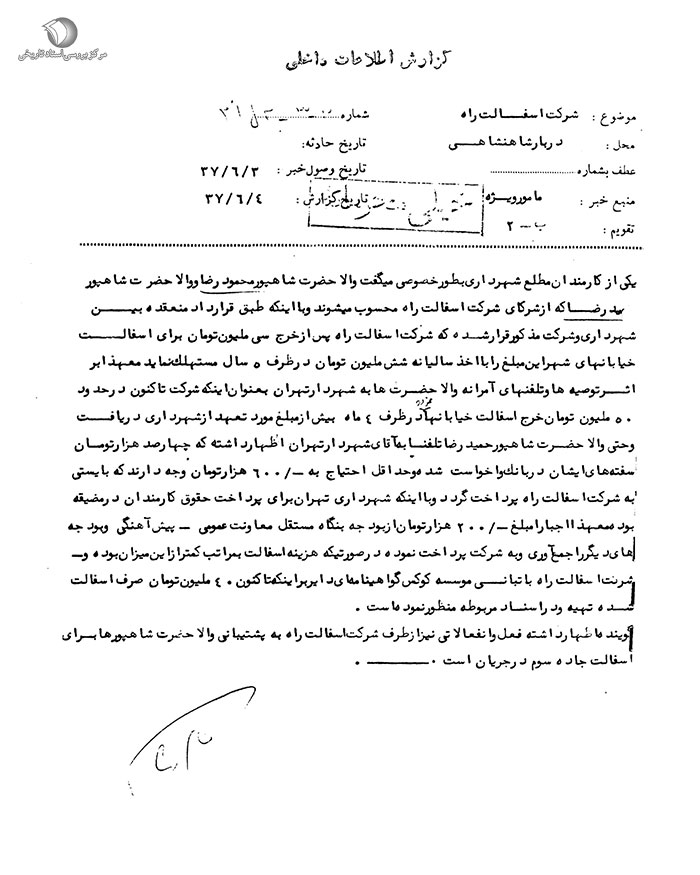 مرکز بررسی اسناد تاریخی
گزارش اطلاعات داخلی
موضوع : شرکت اسفالت راه
شماره
محل : دربار شاهنشاهی
تاریخ حادثه:
عطف بشماره
تاریخ وصول خبر : ۳۷/۶/۳
منبع خبر : مامور ویژه
تاریخ گزارش : ۳۷/۶/۴
تقویم : ب – ۲
یکی از کارمندان مطلع شهرداری بطور خصوصی میگفت والا حضرت شاهپور محمود رضا ووالا حضرت شاهپور
حمید رضا که از شرکای شرکت اسفالت راه محسوب میشوند وبا اینکه طبق قرارداد منعقده بین
شهرداری وشرکت مذکور قرار شده که شرکت اسفالت راه پس از خرج سی ملیون تومان برای اسفالت
خیابانهای شهر این مبلغ را با اخذ سالیانه شش ملیون تومان در ظرف ۵ سال مستهلك نماید معهذا بر
اثر توصیه ها وتلفنهای آمرانه والا حضرت ها به شهردار تهران بعنوان اینکه شرکت تاکنون در حدود
۵۰ ملیون تومان خرج اسفالت خیابانها نموده در ظرف ۴ ماه بیش از مبلغ مورد تعهد از شهرداری دریافت
وحتی والا حضرت شاهپور حمید رضا تلفنا به آقای شهردار تهران اظهار داشته که چهارصد هزار تومان
سفته های ایشان در بانك واخواست شده وحداقل احتیاج به -/۶۰۰ هزار تومان وجه دارند که بایستی
به شرکت اسفالت راه پرداخت گردد وبا اینکه شهرداری تهران برای پرداخت حقوق کارمندان در مضیقه
بوده معهذا اجبارا مبلغ -/۲۰۰ هزار تومان از بودجه بنگاه مستقل معاونت عمومی – پیش آهنگی وبودجه
های دیگر را جمع آوری وبه شرکت پرداخت نموده در صورتیکه هزینه اسفالت بمراتب کمتر از این میزان بوده و –
شرکت اسفالت راه با تبانی موسسه کوکس گواهینامه ای دایر براینکه تاکنون ۴۰ ملیون تومان صرف اسفالت
شده تهیه ودر اسناد مربوطه منظور نموده است .
گوینده اظهار داشته فعل وانفعالاتی نیز از طرف شرکت اسفالت راه به پشتیبانی والا حضرت شاهپورها برای
اسفالت جاده سوم در جریان است .